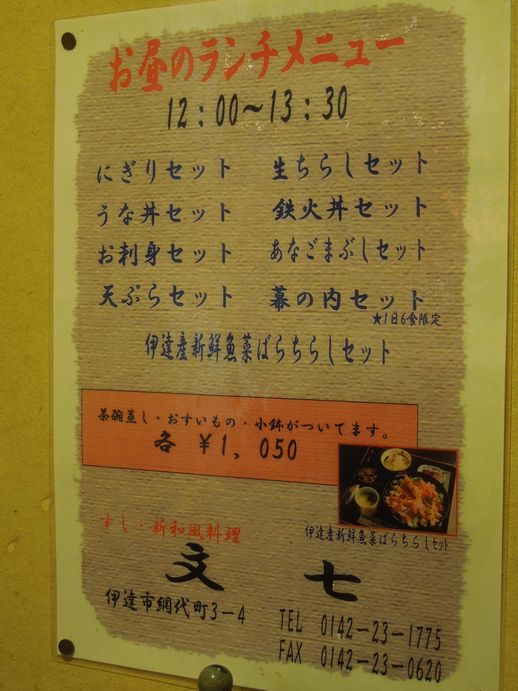 お昼のランチメニュー
12:00～13:30
にぎりセット
生ちらしセット
うな丼セット
鉄火丼セット
お刺身セット
あなごまぶしセット
天ぷらセット
幕の内セット
★1日6食限定
伊達産新鮮魚菜ばらちらしセット
茶碗蒸し・おすいもの・小鉢がついてます。
各 ¥1,050
伊達産新鮮魚菜ばらちらしセット
すし・新和風料理
文七
伊達市網代町3-4
TEL 0142-23-1775
FAX 0142-23-0620